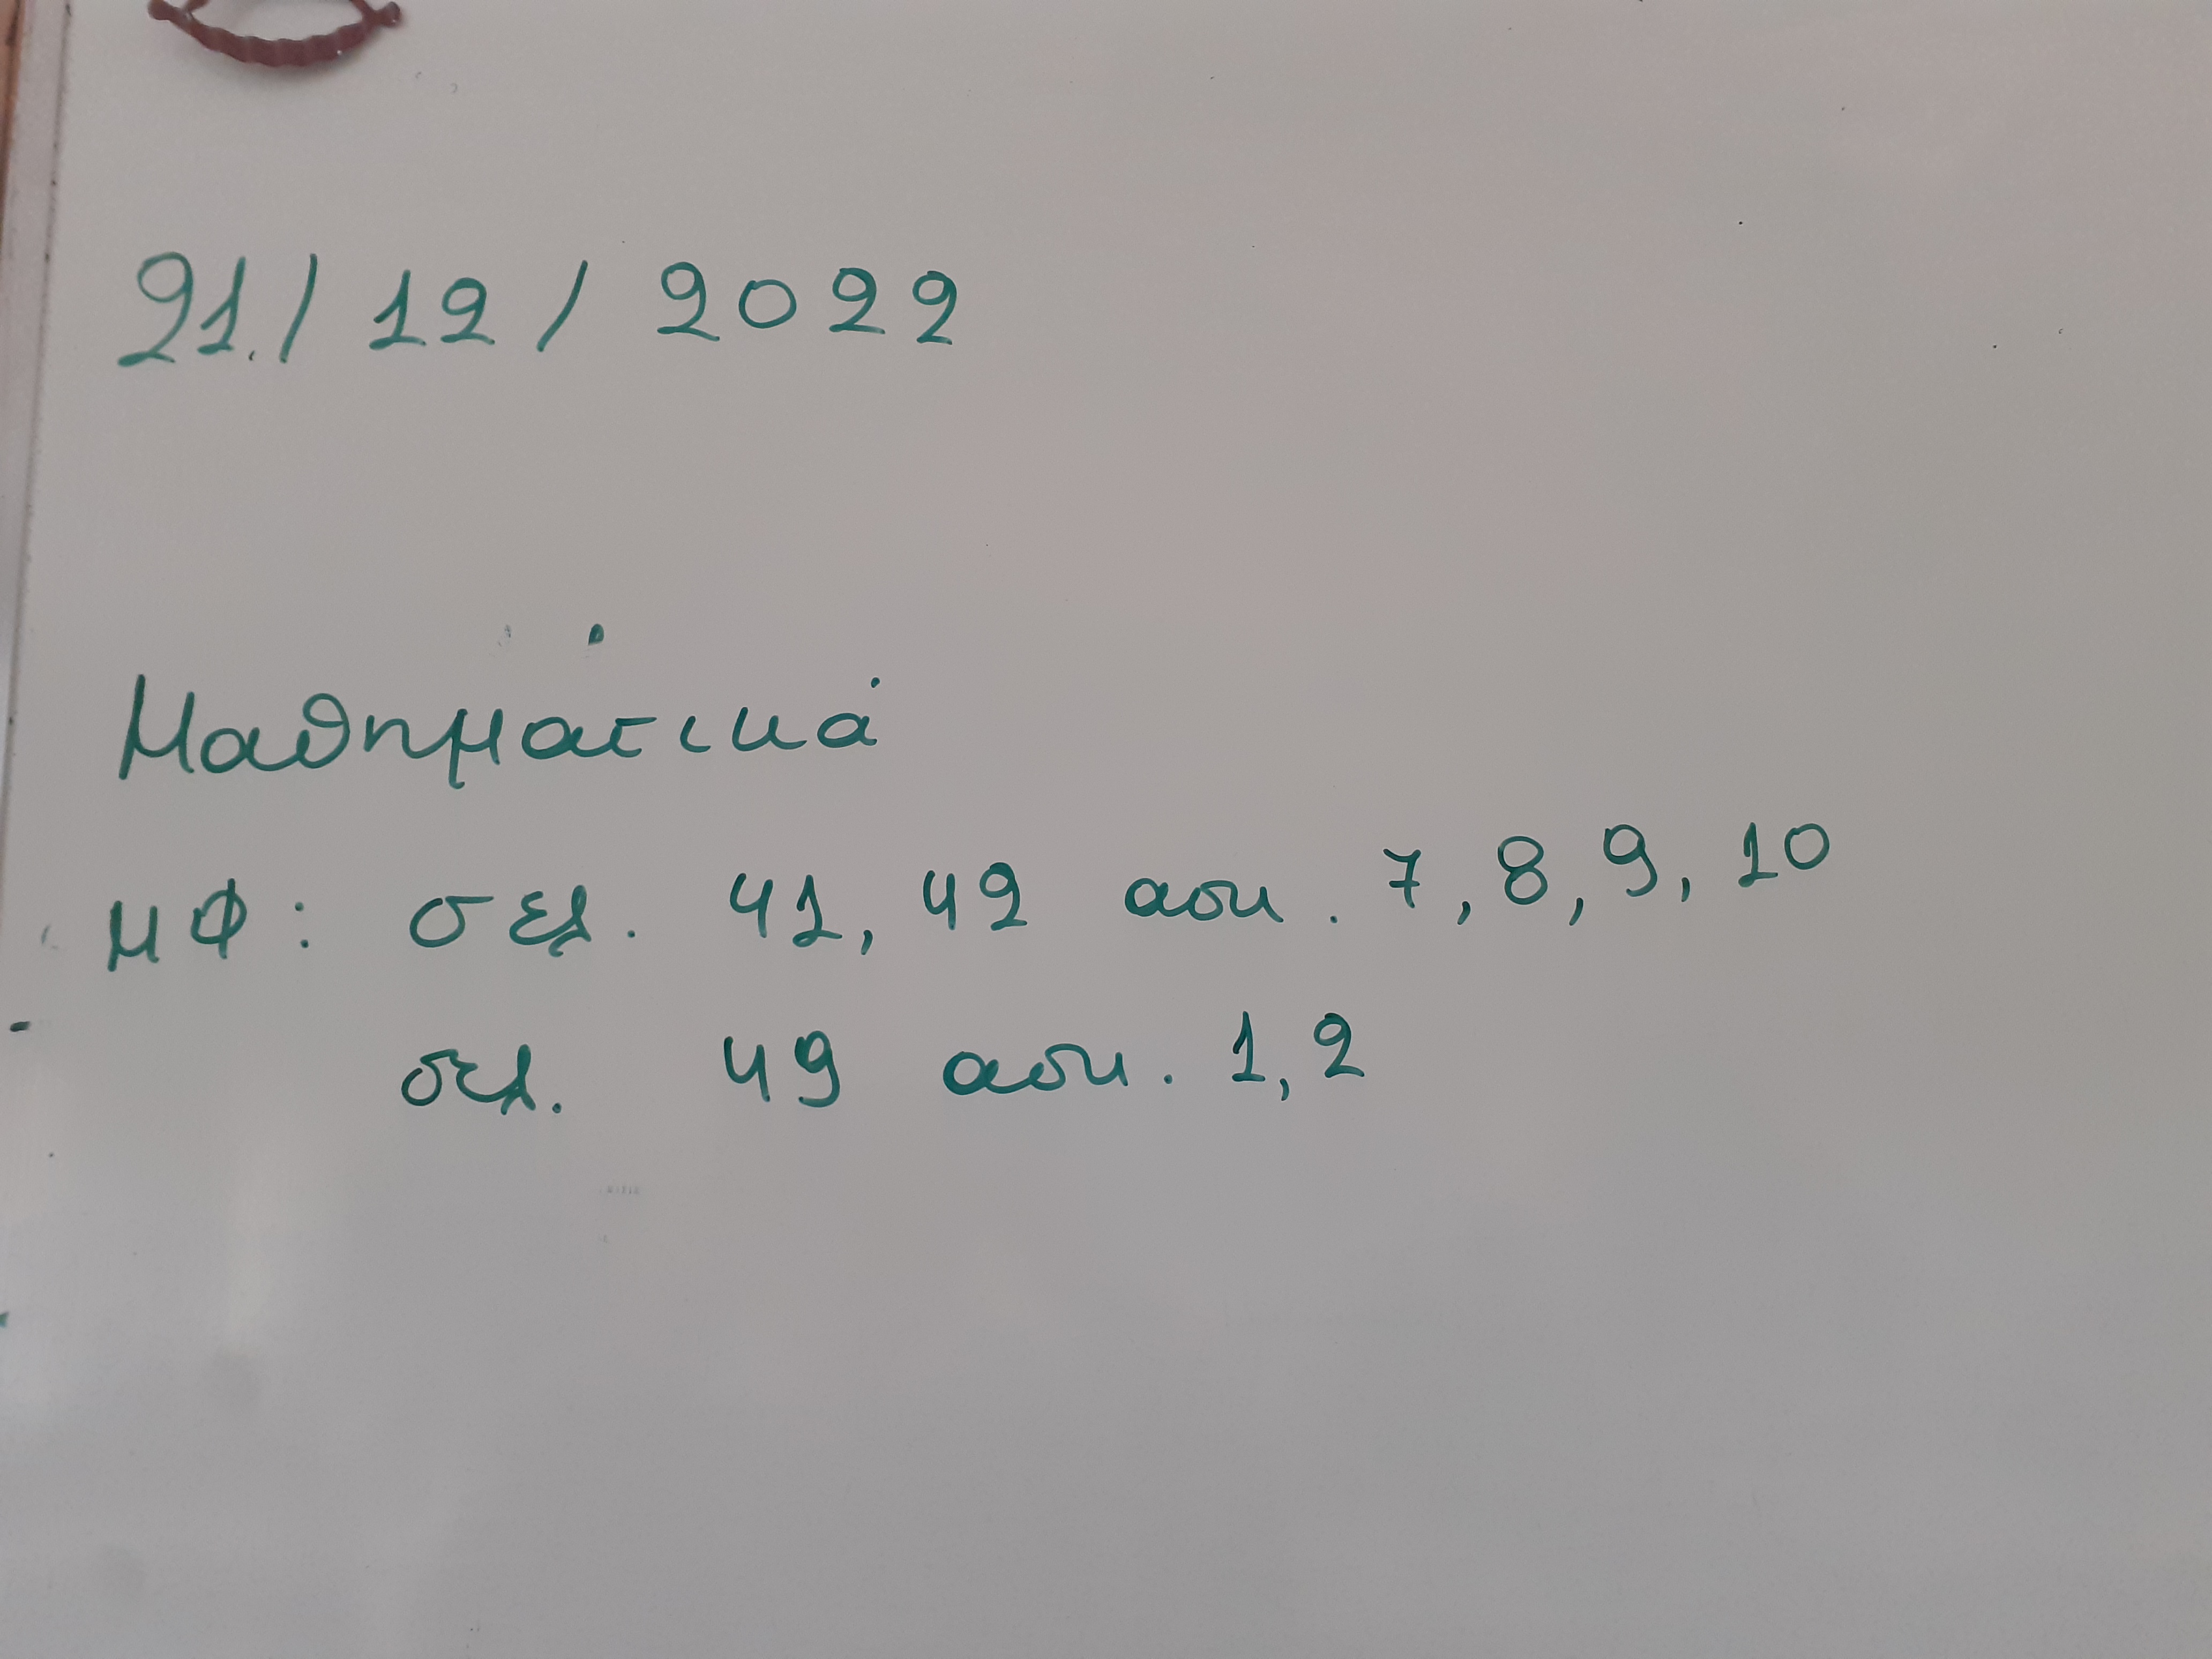 21/12/2022
Μαθηματικά
ΜΦ: σελ. 41, 42 ασκ. 7, 8, 9, 10
σελ. 49 ασκ. 1, 2